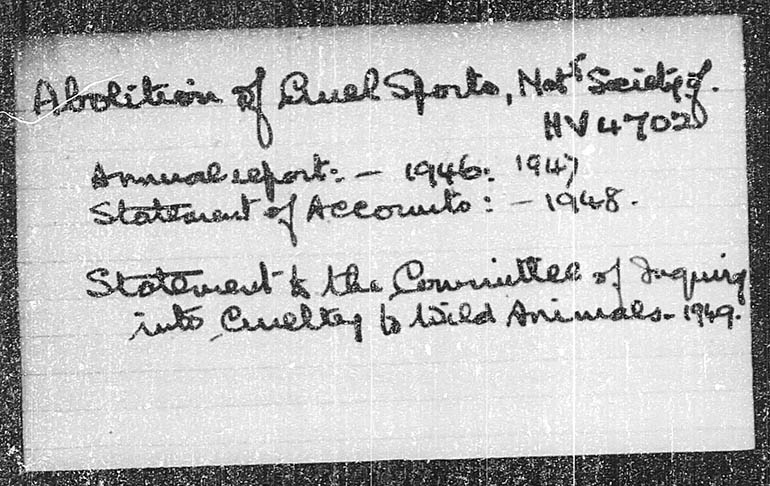 Abolition of Cruel Sports, Natl Society of.
HV4702
Annual report: - 1946: 1947
Statement of Accounts: - 1948.
Statement to the Committee of Inquiry
into Cruelty to Wild Animals - 1949.